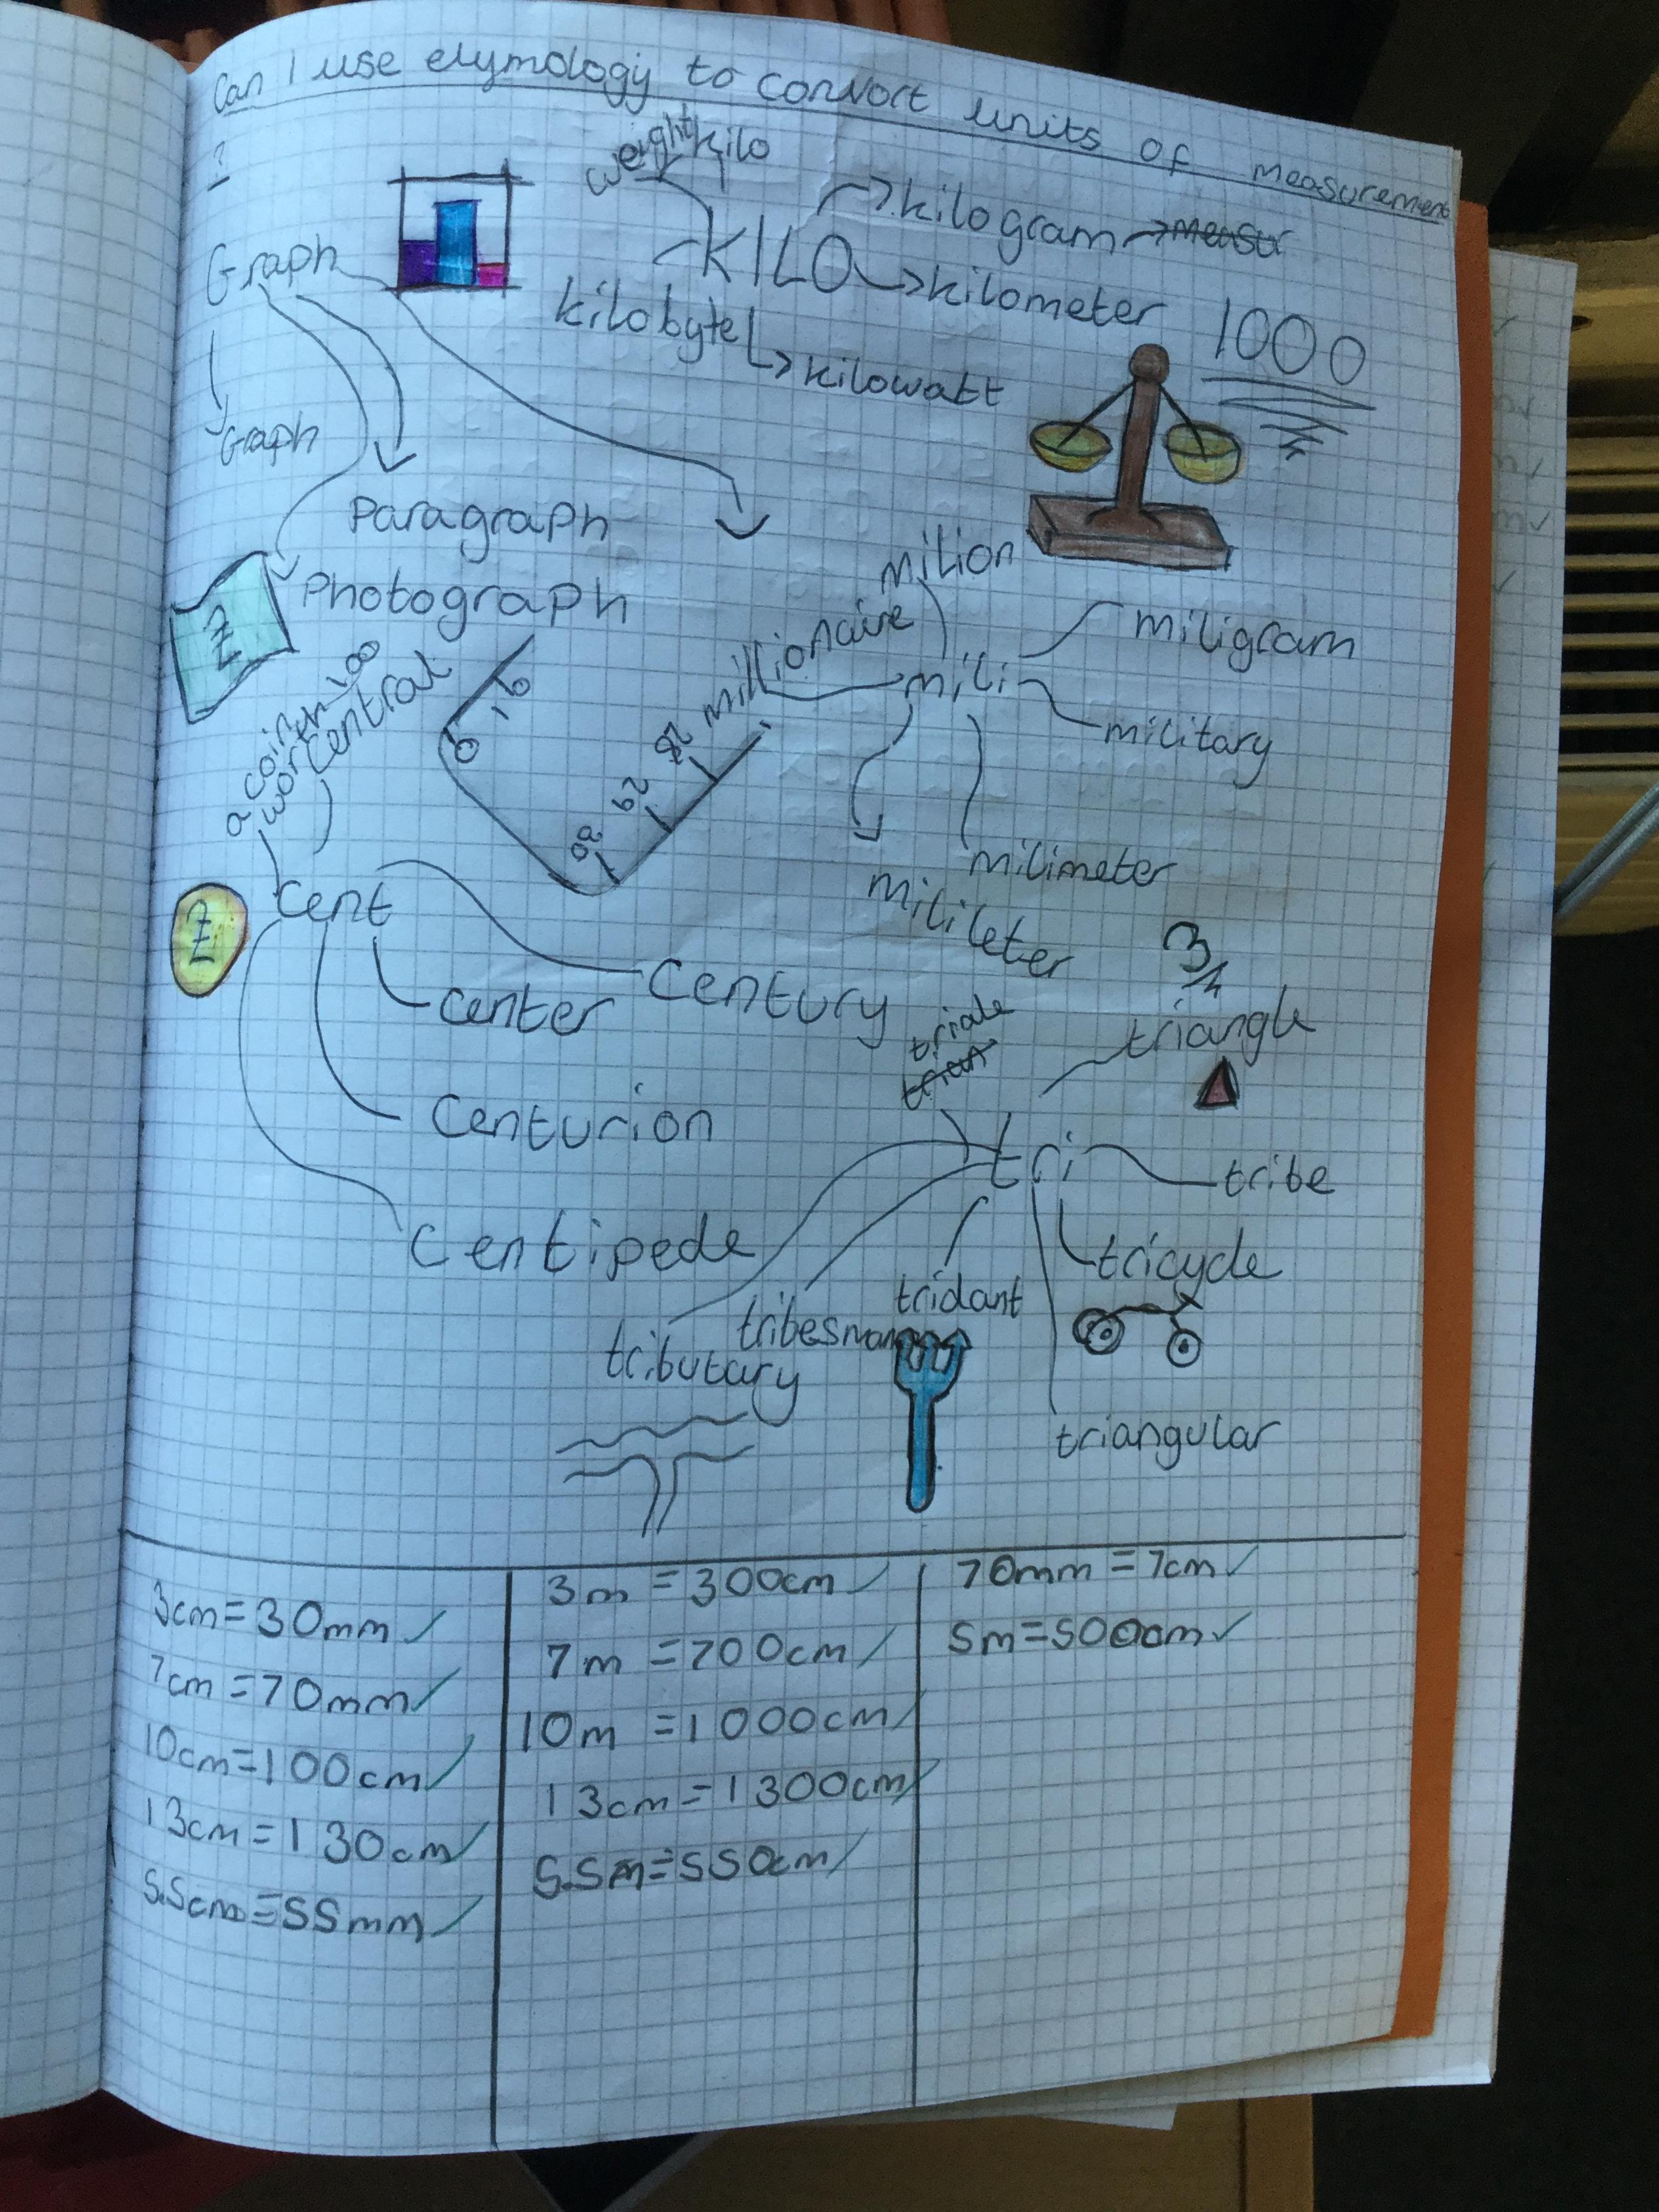 Can I use etymology to convort units of measurement
?
weight
kilo
KILO
kilogram
measur
kilometer
kilobyte
kilowatt
1000
Graph
Graph
Paragraph
Photograph
milion
millionaire
mili
miligram
military
milimeter
milileter
a coin
worth 100
central
10
0
28
29
Cent
century
center
Centurion
Centipede
3
triale
triangle
tri
tribe
tricycle
tridant
tribesman
tributary
triangular
3cm=30mm ✓
7cm=70mm ✓
10cm=100cm ✓
13cm=130cm ✓
5.5cm=55mm ✓
3m=300cm ✓
7m=700cm ✓
10m=1000cm ✓
13cm=1300cm ✓
5.5m=550cm ✓
70mm=7cm ✓
5m=500cm ✓